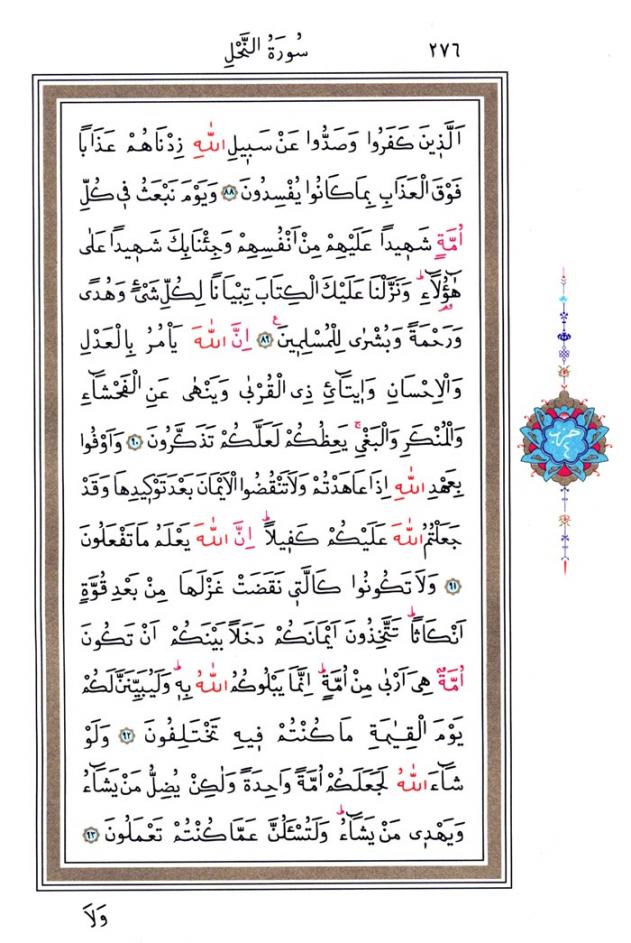 سُورَةُ النَّحْلِ ٢٧٦
اَلَّذٖينَ كَفَرُوا وَصَدُّوا عَنْ سَبٖيلِ اللّٰهِ زِدْنَاهُمْ عَذَابًا
فَوْقَ الْعَذَابِ بِمَا كَانُوا يُفْسِدُونَ ٨٨ وَيَوْمَ نَبْعَثُ فٖى كُلِّ
اُمَّةٍ شَهٖيدًا عَلَيْهِمْ مِنْ اَنْفُسِهِمْ وَجِئْنَا بِكَ شَهٖيدًا عَلٰى
هٰٓؤُ۬لَٓاءِۜ وَنَزَّلْنَا عَلَيْكَ الْكِتَابَ تِبْيَانًا لِكُلِّ شَىْءٍ وَهُدًى
وَرَحْمَةً وَبُشْرٰى لِلْمُسْلِمٖينَ ع ٨٩ اِنَّ اللّٰهَ يَاْمُرُ بِالْعَدْلِ
وَالْاِحْسَانِ وَاٖيتَٓائِ ذِى الْقُرْبٰى وَيَنْهٰى عَنِ الْفَحْشَٓاءِ
وَالْمُنْكَرِ وَالْبَغْىِۚ يَعِظُكُمْ لَعَلَّكُمْ تَذَكَّرُونَ ٩٠ وَاَوْفُوا
بِعَهْدِ اللّٰهِ اِذَا عَاهَدْتُمْ وَلَا تَنْقُضُوا الْاَيْمَانَ بَعْدَ تَوْكٖيدِهَا وَقَدْ
جَعَلْتُمُ اللّٰهَ عَلَيْكُمْ كَفٖيلًاۜ اِنَّ اللّٰهَ يَعْلَمُ مَا تَفْعَلُونَ
٩١ وَلَا تَكُونُوا كَالَّتٖى نَقَضَتْ غَزْلَهَا مِنْ بَعْدِ قُوَّةٍ
اَنْكَاثًاۜ تَتَّخِذُونَ اَيْمَانَكُمْ دَخَلًا بَيْنَكُمْ اَنْ تَكُونَ
اُمَّةٌ هِىَ اَرْبٰى مِنْ اُمَّةٍۜ اِنَّمَا يَبْلُوكُمُ اللّٰهُ بِهٖۜ وَلَيُبَيِّنَنَّ لَكُمْ
يَوْمَ الْقِيٰمَةِ مَا كُنْتُمْ فٖيهِ تَخْتَلِفُونَ ٩٢ وَلَوْ
شَٓاءَ اللّٰهُ لَجَعَلَكُمْ اُمَّةً وَاحِدَةً وَلٰكِنْ يُضِلُّ مَنْ يَشَٓاءُ
وَيَهْدٖى مَنْ يَشَٓاءُۜ وَلَتُسْـَٔلُنَّ عَمَّا كُنْتُمْ تَعْمَلُونَ ٩٣
حزب ٤
وَلَا